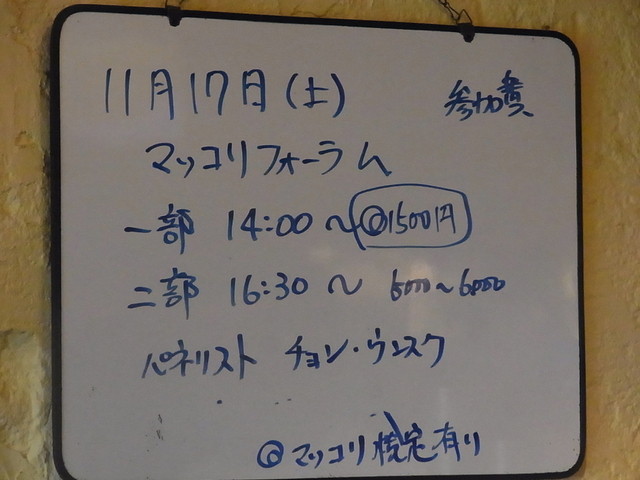 11月17日(土) 参加費
マッコリフォーラム
一部 14:00～@1500円
二部 16:30～ 5000～6000
パネリスト チョン・ウンスク
@マッコリ検定有り